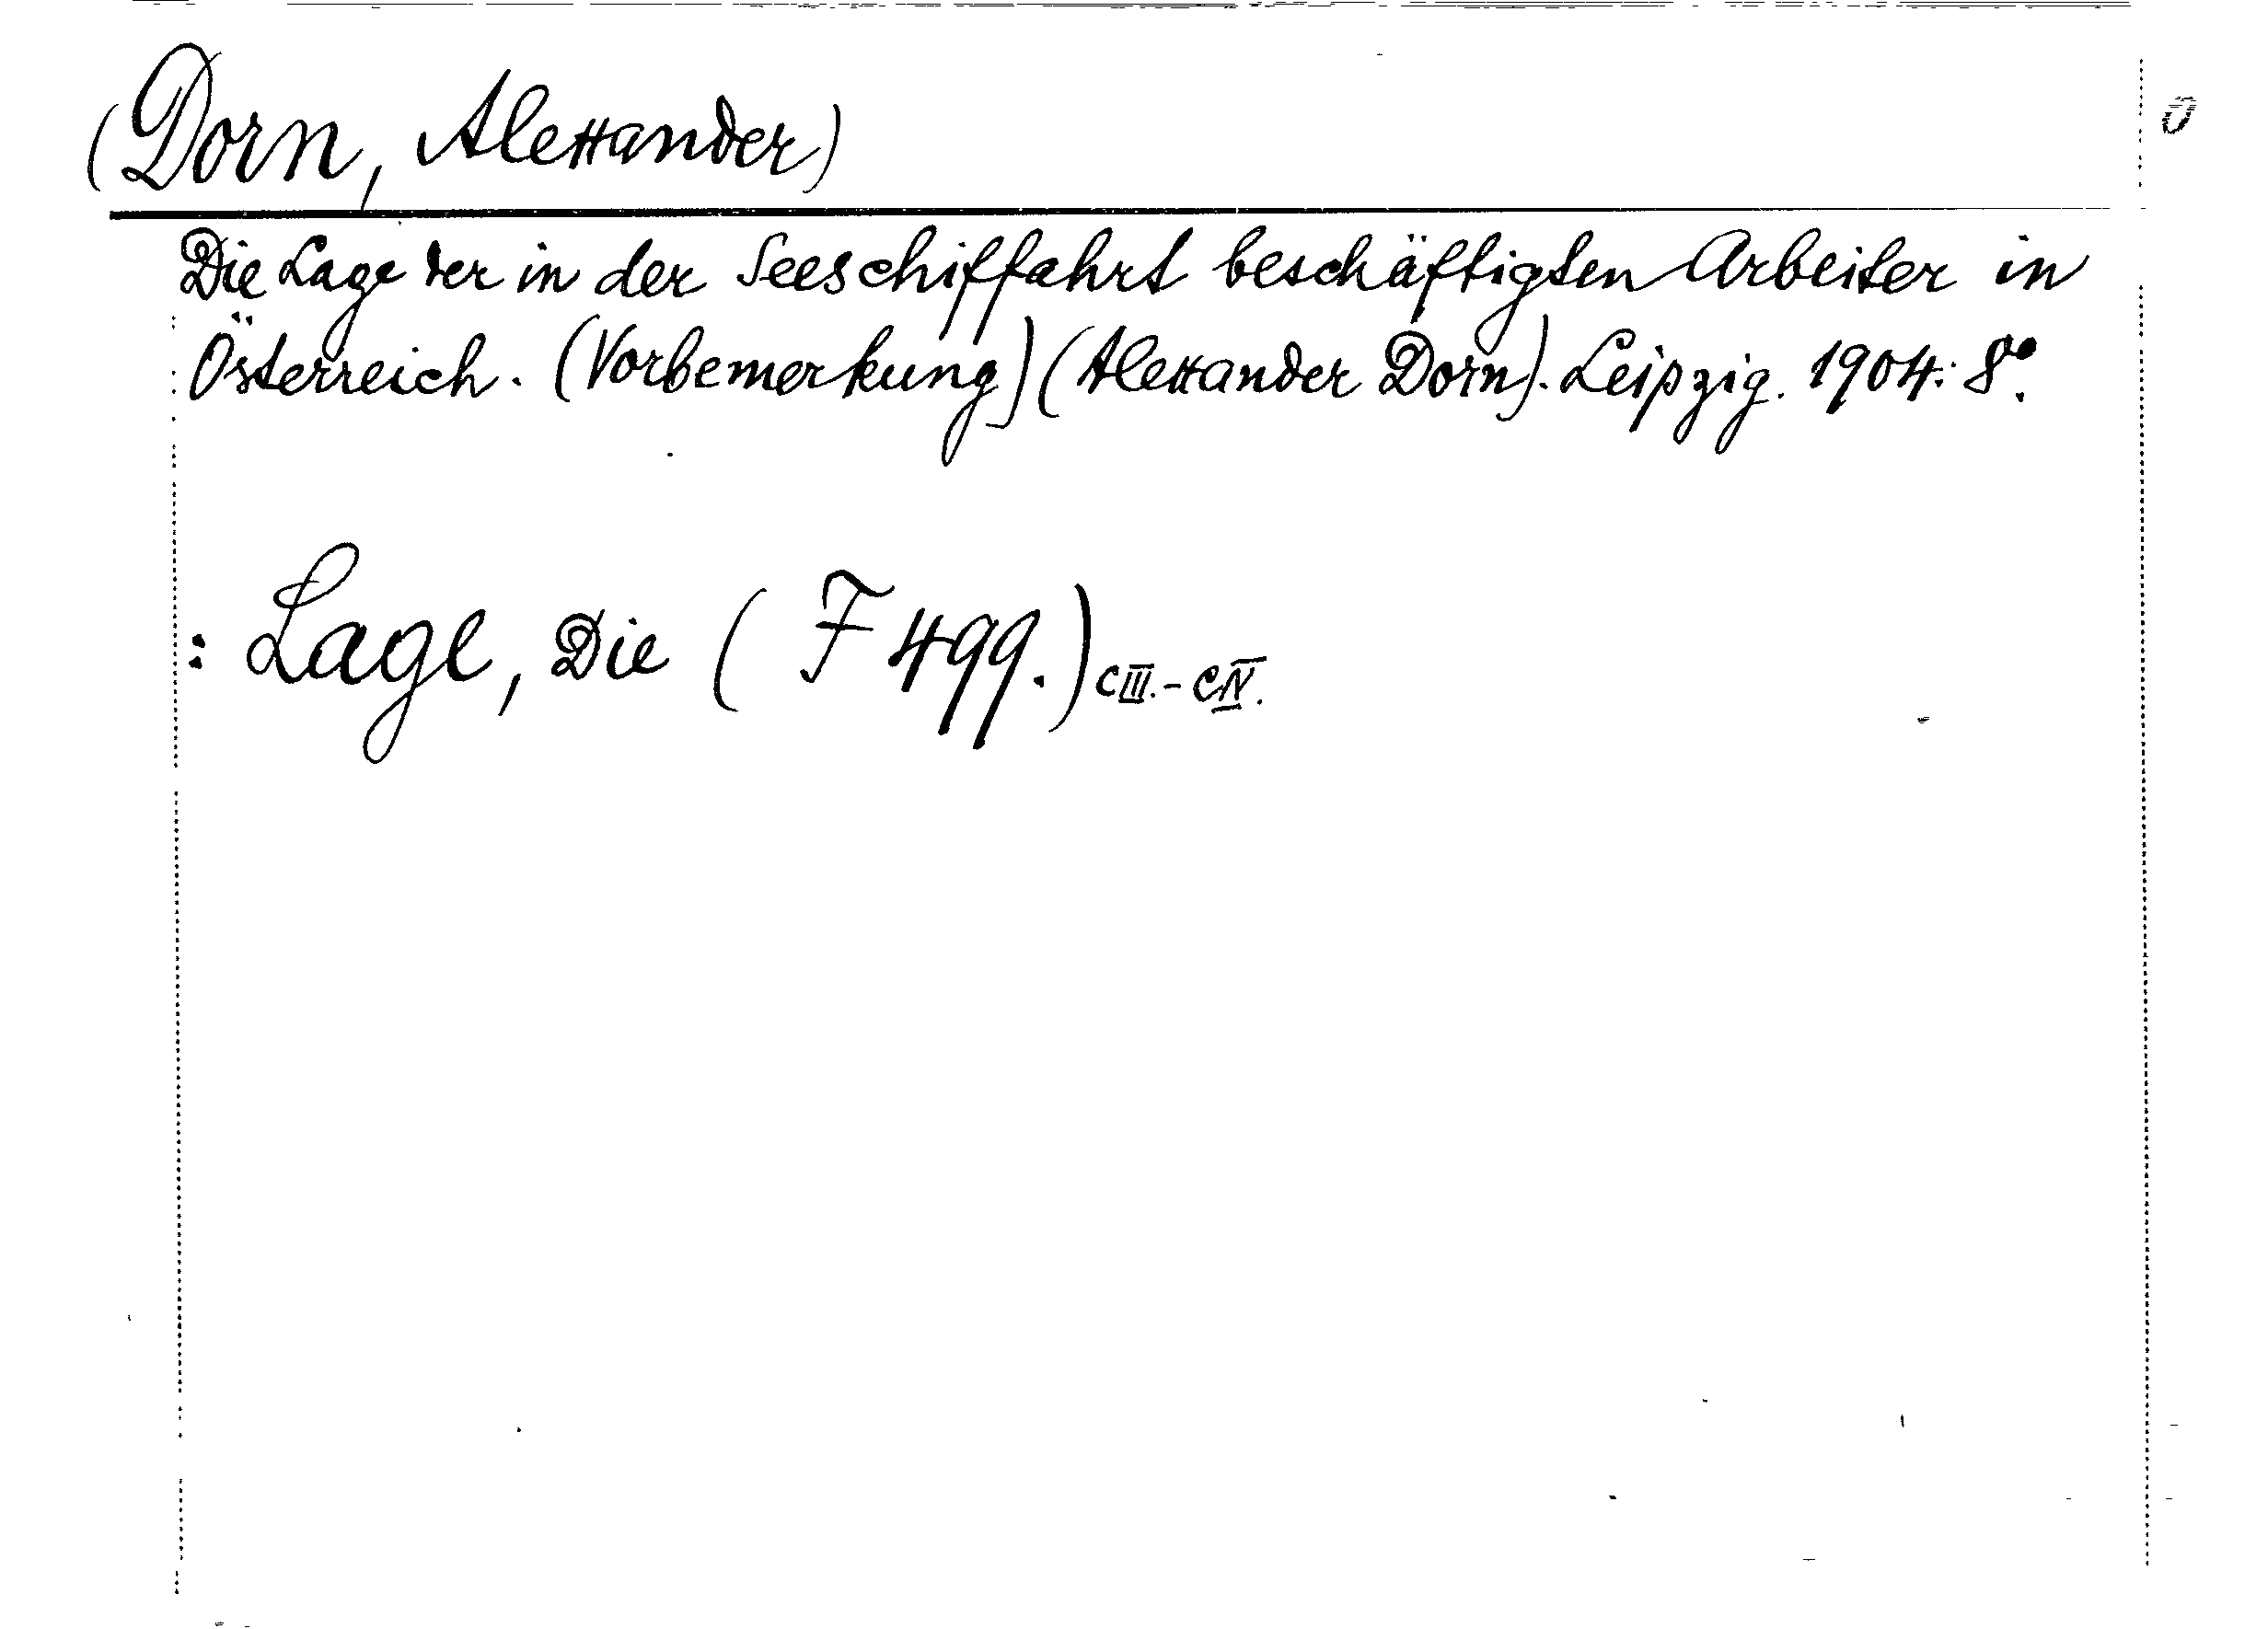 (Dorn, Alexander)
Die Lage der in der Seeschiffahrt beschäftigten Arbeiter in
Österreich. (Vorbemerkung) (Alexander Dorn). Leipzig. 1904. 8°.
: Lage, Die (F 499.) C III. - C IV.